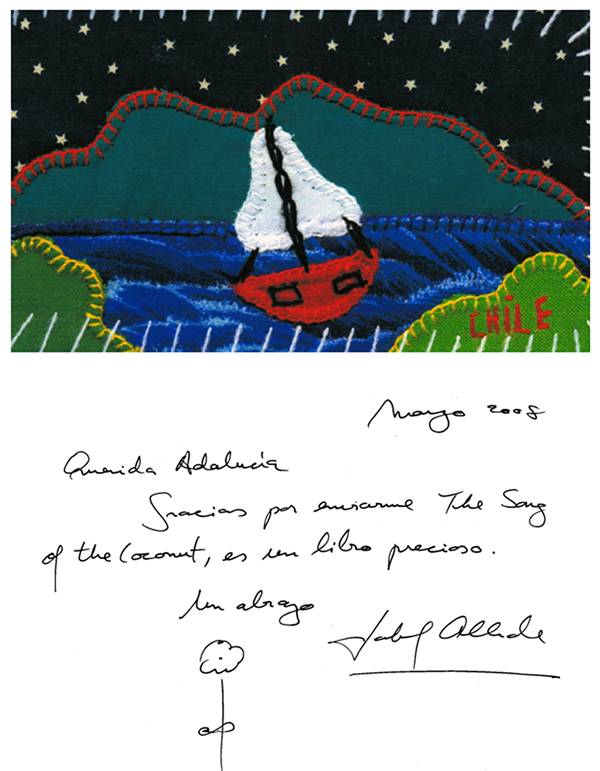 CHILE
Marzo 2008
Querida Adalucía
Gracias por enviarme The Song
of the Coconut, es un libro precioso.
Un abrazo
Isabel Allende